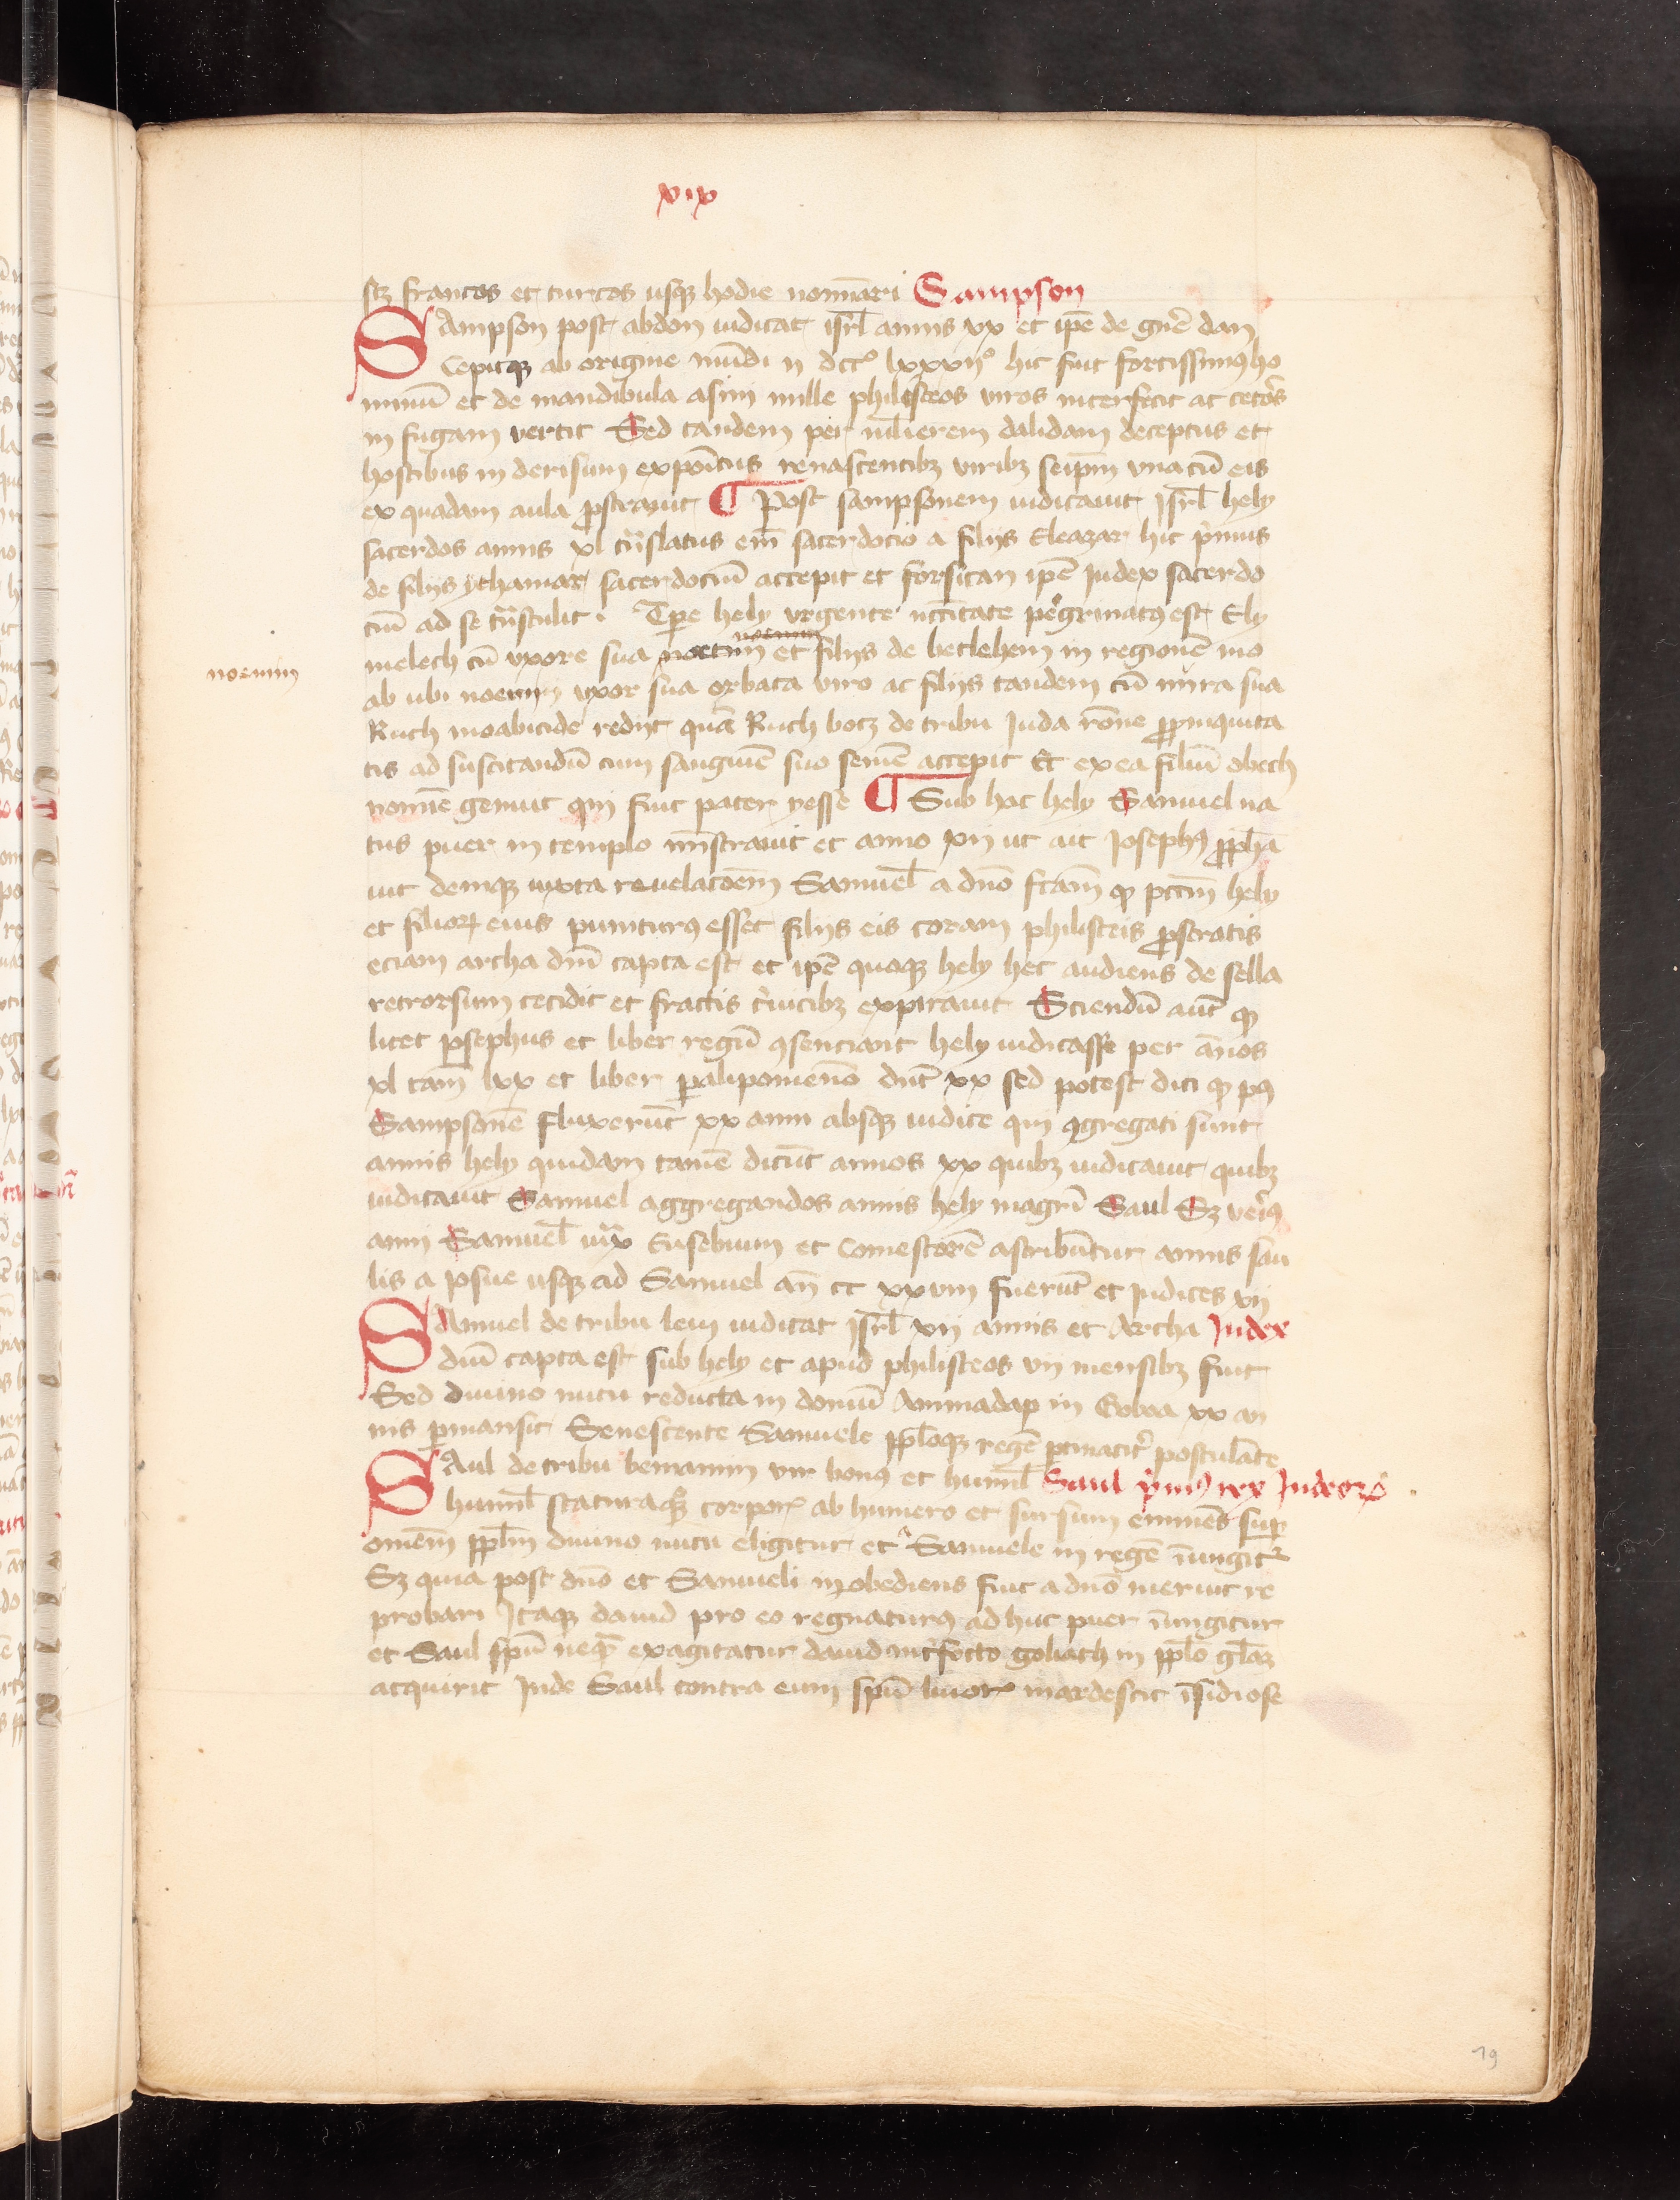 xix
scz francos et turcos usqz hodie nominari Sampson
SAmpson post abdon iudicat isrl annis xx et ipe de gne dan
Cepitqz ab origine mundi ii dcc° lxxvii° hic fuit fortissimus ho
minu et de mandibula asini mille philisteos viros interfecit ac cetos
in fugam vertit Sed tandem per mulierem dalidam deceptus et
hostibus in derisum expoitus renascentibz viribz seipm vna cu eis
ex quadam aula pstrauit ¶ Post sampsonem iudicauit Isrl hely
sacerdos annis xl tnslatus em sacerdocio a filijs Eleazar hic pmus
de filijs ythamar sacerdociu accepit et forsitan ipe Iudex sacerdo
ciu ad se tnstulit · Tpe hely vrgente necitate pegrinatus est Ely
melech cu vxore sua noemin et filijs de betlehem in regione mo
noemin
ab ubi noemin vxor sua orbata viro ac filijs tandem cu nura sua
Ruth moabitide redijt qua Ruth botz de tribu Iuda rone ppinquita
tis ad suscitandu cum sanguine suo semen accepit Et ex ea filiu obeth
nomine genuit qui fuit pater yesse ¶ Sub hac hely Samuel na
tus puer in templo mistrauit et anno xii ut ait Iosephus ppha
uit deniqz iuxta reuelacoem Samuel a dno fcam qz pccm hely
et filior eius puniturus esset filijs eis coram philisteis pstratis
eciam archa dni capta est et ipe quoqz hely hec audiens de sella
retrorsum cecidit et fractis ceruicibz expirauit Sciendu aut qz
licet Iosephus et liber regu consenciant hely iudicasse per annos
xl tam lxx et liber palipomenon dnt xx sed potest dici qz pus
Sampsone fluxerut xx anni absqz iudice qui cgregati sunt
annis hely quidam tame dicut annos xx quibz iudicauit quibz
iudicauit Samuel aggregandos annis hely magri Saul Sz verius
anni Samuel iuxta Eusebium et Comestore ascribuntur annis sau
lis a Iosue usqz ad Samuel an cc xxviii fuerut et Iudices xii
SAmuel de tribu leui iudicat Isrl xii annis et Archa Iudex
dni capta est sub hely et apud philisteos vii mensibz fuit
Sed diuino nutu reducta in domu Aminadap in Gobaa xx an
nis pmansit Senescente Samuele pploqz rege ptinacit postulante
SAul de tribu beniamin vir bonus et humil Saul pmus rex Iudeor
humil staturaqz corpor ab humero et sursum eminens sup
omem pplm diuino nutu eligitur et a Samuele in rege inungit
Sz quia post dno et Samueli inobediens fuit a dno meruit re
probari Itaqz dauid pro eo regnaturus ad huc puer inungitur
et Saul spu neqz exagitatur dauid interfecto goliath in pplo glaz
acquirit Inde Saul contra eum spu liuor inardescit isidiose
19